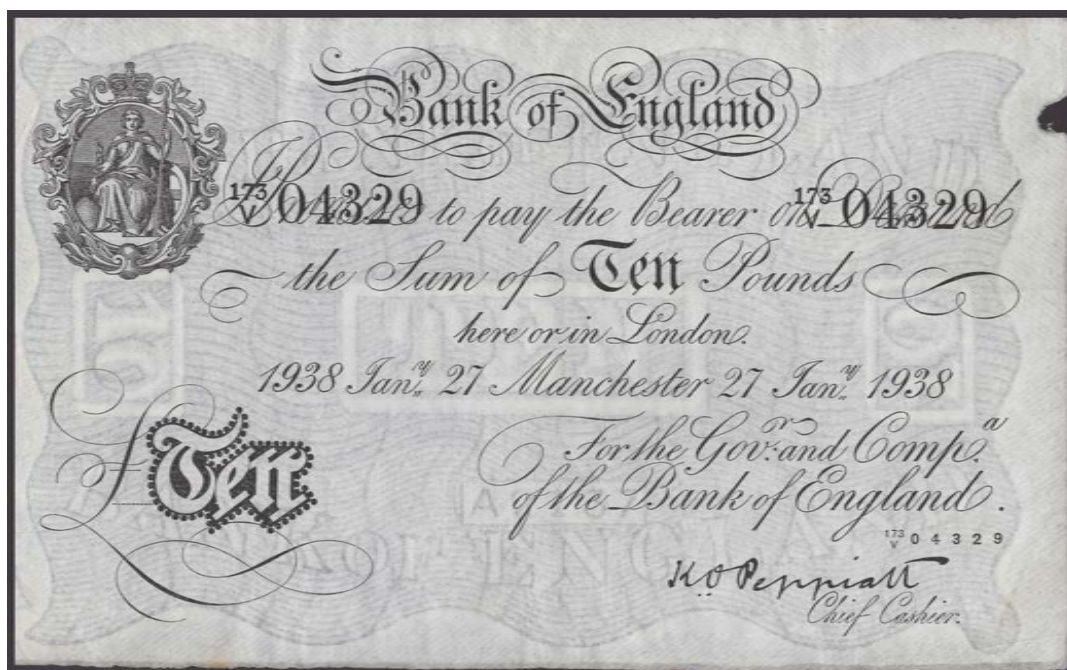 Bank of England
173/V 04329 to pay the Bearer on 173/V 04329
the Sum of Ten Pounds
here or in London.
1938 Jan.y 27 Manchester 27 Jan.y 1938
For the Gov.r: and Comp.a
of the Bank of England.
£Ten
173/V 04329
K.O. Peppiatt
Chief Cashier.